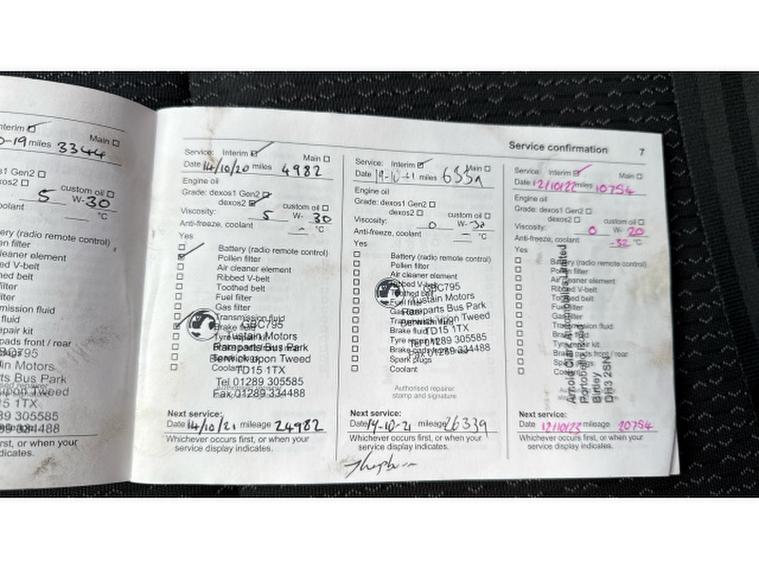 Service confirmation 7
Interim
Main
-19 miles 3344
Gen2
custom oil
5 W-30
°C
(radio remote control)
filter
cleaner element
V-belt
belt
filter
filter
fluid
fluid
repair kit
pads front / rear
Motors
Bus Park
TD15 1TX
Service: Interim Main
Date 14/10/20 miles 4982
Engine oil
Grade: dexos1 Gen2
dexos2
Viscosity: 5 W- 30
Anti-freeze, coolant - °C
Yes
Battery (radio remote control)
Pollen filter
Air cleaner element
Ribbed V-belt
Toothed belt
Fuel filter
Gas filter
Transmission fluid
Brake fluid
Tyre repair kit
Coolant
GBC795
Tustain Motors
Ramparts Bus Park
Berwick upon Tweed
TD15 1TX
Tel 01289 305585
Fax 01289 334488
Next service:
Date 14/10/21 mileage 24982
Whichever occurs first, or when your
service display indicates.
Service: Interim Main
Engine oil
Grade: dexos1 Gen2
dexos2 custom oil
Viscosity: 0 W- 30
Anti-freeze, coolant - °C
Yes
Battery (radio remote control)
Pollen filter
Air cleaner element
Ribbed V-belt
Toothed belt
Fuel filter
Brake fluid
Spark plugs
Coolant
GBC795
Tustain Motors
Ramparts Bus Park
Berwick upon Tweed
TD15 1TX
Tel 01289 305585
Fax 01289 334488
Authorised repairer
stamp and signature
Next service:
mileage 26339
Whichever occurs first, or when your
service display indicates.
Service: Interim Main
Date 12/10/22 miles 10754
Engine oil
Grade: dexos1 Gen2
dexos2 custom oil
Viscosity: 0 W- 20
Anti-freeze, coolant -32 °C
Yes
Battery (radio remote control)
Pollen filter
Air cleaner element
Ribbed V-belt
Toothed belt
Fuel filter
Gas filter
Transmission fluid
Brake fluid
Tyre repair kit
Brake pads front / rear
Spark plugs
Coolant
Arnold Clark Automobiles Limited
Portobello Road
Birtley
DH3 2SN
Next service:
Date 12/10/23 mileage 20754
Whichever occurs first, or when your
service display indicates.